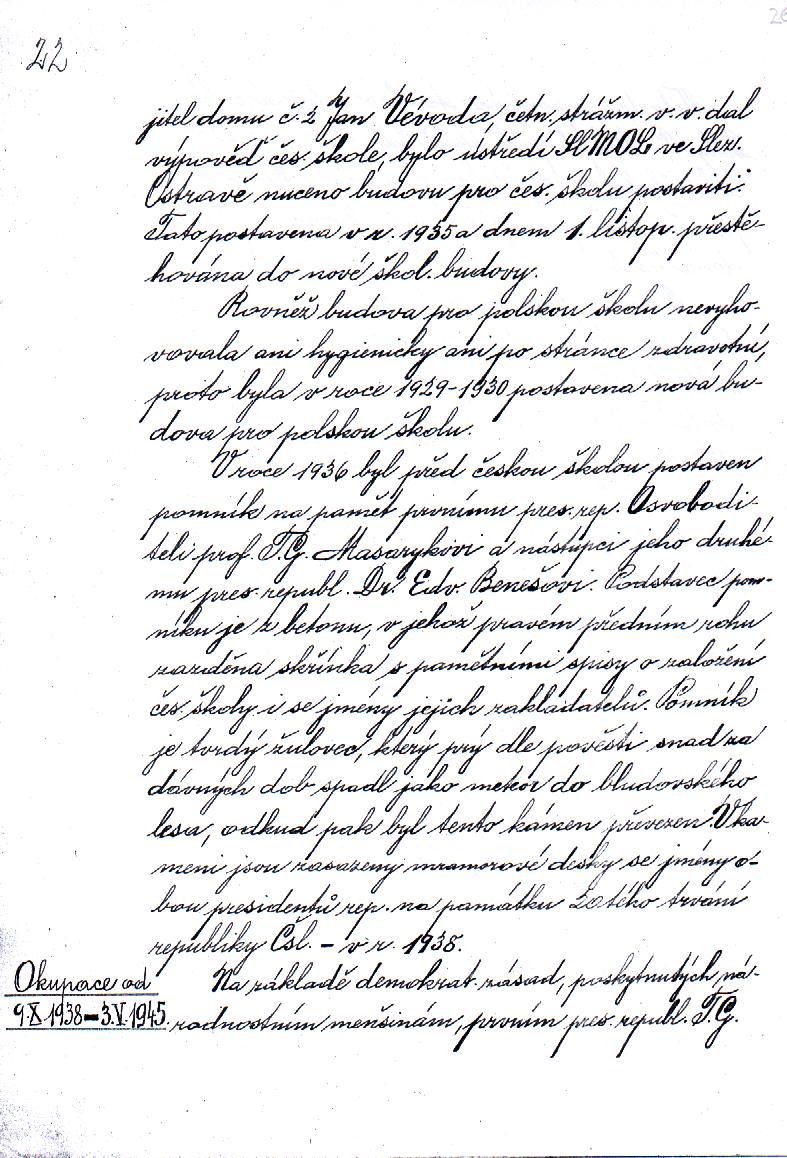 26
22
jitel domu č. 2 Jan Vévoda, četn. strážm. v. v. dal
výpověď čes. škole, bylo ústředí SlMOL ve Slez.
Ostravě nuceno budovu pro čes. školu postaviti.
Tato postavena v r. 1935 a dnem 1. listop. přestě-
hována do nové škol. budovy.
Rovněž budova pro polskou školu nevyho-
vovala ani hygienicky ani po stránce zdravotní,
proto byla v roce 1929-1930 postavena nová bu-
dova pro polskou školu.
V roce 1936 byl před českou školou postaven
pomník na paměť prvnímu pres. rep. Osvobodi-
teli prof. T.G. Masarykovi a nástupci jeho druhé-
mu pres. republ. Dr. Edv. Benešovi. Podstavec pom-
níku je z betonu, v jehož pravém předním rohu
zazděna skřínka s pamětními spisy o založení
čes. školy i se jmény jejich zakladatelů. Pomník
je tvrdý žulovec, který prý dle pověsti snad za
dávných dob spadl jako meteor do bludovského
lesa, odkud pak byl tento kámen převezen. V ka-
meni jsou zasazeny mramorové desky se jmény o-
bou presidentů rep. na památku 20tého trvání
republiky Čsl. – v r. 1938.
Okupace od
9.X.1938–3.V.1945.
Na základě demokrat. zásad, poskytnutých ná-
rodnostním menšinám, prvním pres. republ. T.G.